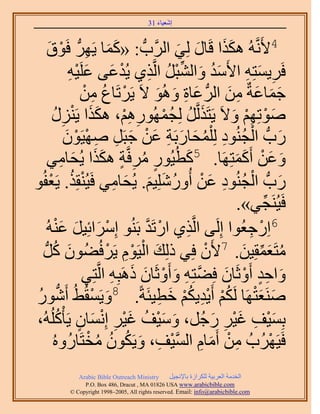 إشعياء 31
4لأَنَّهُ هكَذَا قَالَ لِيَ الرَّبُّ: «كَمَا يَهِرُّ فَوْقَ
فَرِيسَتِهِ الأَسَدُ وَالشِّبْلُ الَّذِي يُدْعَى عَلَيْهِ
جَمَاعَةٌ مِنَ الرُّعَاةِ وَهُوَ لاَ يَرْتَاعُ مِنْ
صَوْتِهِمْ وَلاَ يَتَذَلَّلُ لِجُمْهُورِهِمْ، هكَذَا يَنْزِلُ
رَبُّ الْجُنُودِ لِلْمُحَارَبَةِ عَنْ جَبَلِ صِهْيَوْنَ
وَعَنْ أَكَمَتِهَا. 5كَطُيُورٍ مُرِفَّةٍ هكَذَا يُحَامِي
رَبُّ الْجُنُودِ عَنْ أُورُشَلِيمَ. يُحَامِي فَيُنْقِذُ. يَعْفُو
فَيُنَجِّي».
6اِرْجِعُوا إِلَى الَّذِي ارْتَدَّ بَنُو إِسْرَائِيلَ عَنْهُ
مُتَعَمِّقِينَ. 7لأَنْ فِي ذلِكَ الْيَوْمِ يَرْفُضُونَ كُلُّ
وَاحِدٍ أَوْثَانَ فِضَّتِهِ وَأَوْثَانَ ذَهَبِهِ الَّتِي
صَنَعَتْهَا لَكُمْ أَيْدِيكُمْ خَطِيئَةً. 8وَيَسْقُطُ أَشُّورُ
بِسَيْفِ غَيْرِ رَجُل، وَسَيْفُ غَيْرِ إِنْسَانٍ يَأْكُلُهُ،
فَيَهْرُبُ مِنْ أَمَامِ السَّيْفِ، وَيَكُونُ مُخْتَارُوهُ
Arabic Bible Outreach Ministry الخدمة العربية للكرازة بالإنجيل
P.O. Box 486, Dracut , MA 01826 USA www.arabicbible.com
© Copyright 1998-2005, All rights reserved. Email: info@arabicbible.com